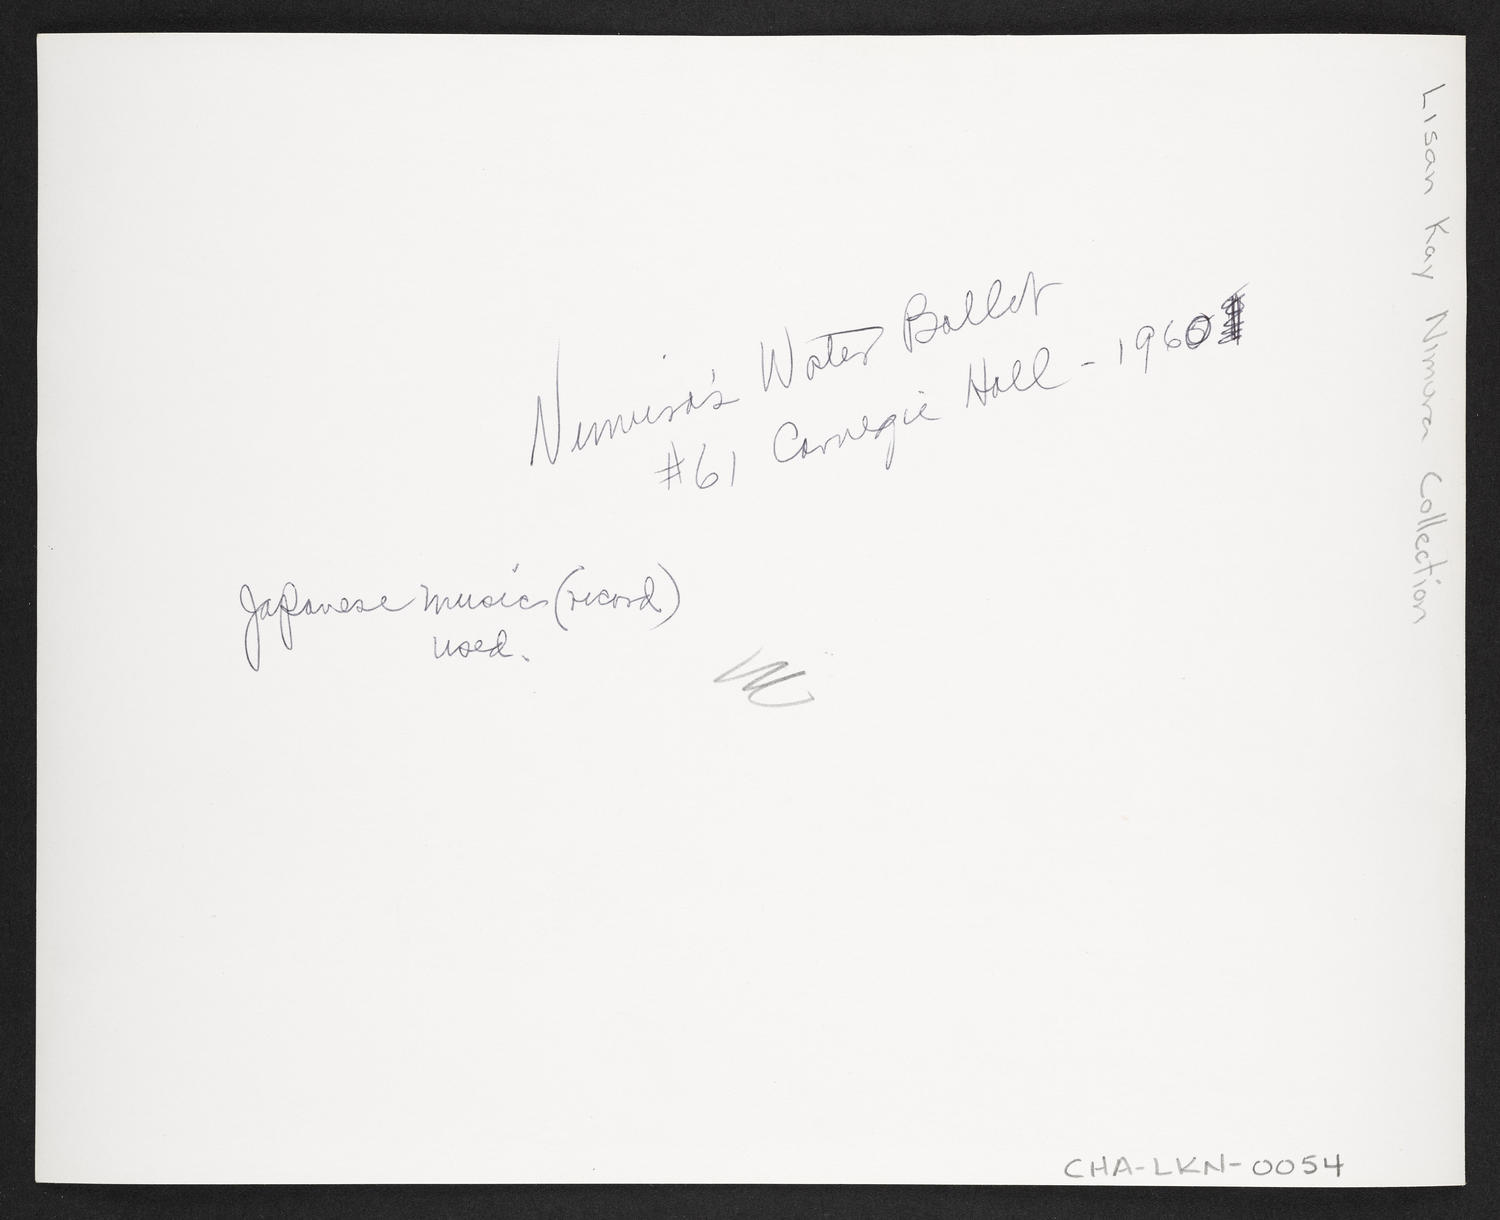 Nimura's Water Ballet
#61 Carnegie Hall - 1960
Japanese music (record)
used.
Lisan Kay Nimura Collection
CHA-LKN-0054